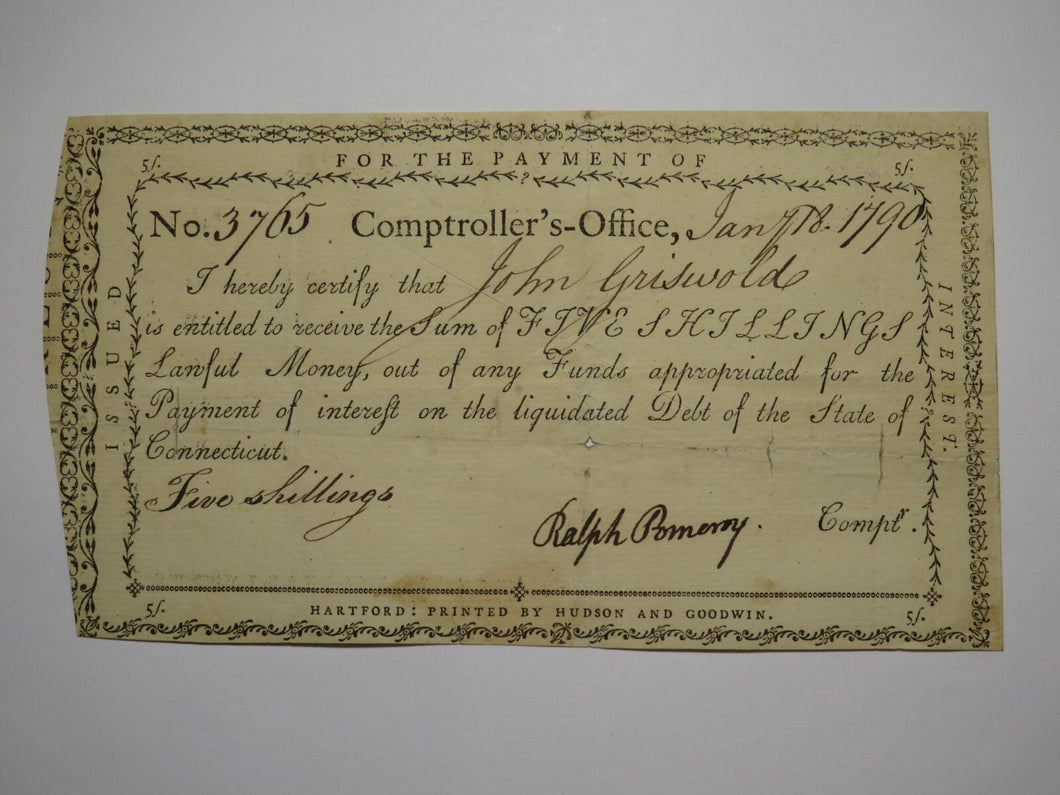 5/.
FOR THE PAYMENT OF
5/.
No. 3765 Comptroller's-Office, Jany 18. 1790
I hereby certify that John Griswold
is entitled to receive the Sum of FIVE SHILLINGS
Lawful Money, out of any Funds appropriated for the
Payment of intereſt on the liquidated Debt of the State of
Connecticut.
Five shillings
Ralph Pomeroy. Comptr.
ISSUED
INTEREST.
5/.
HARTFORD: PRINTED BY HUDSON AND GOODWIN.
5/.